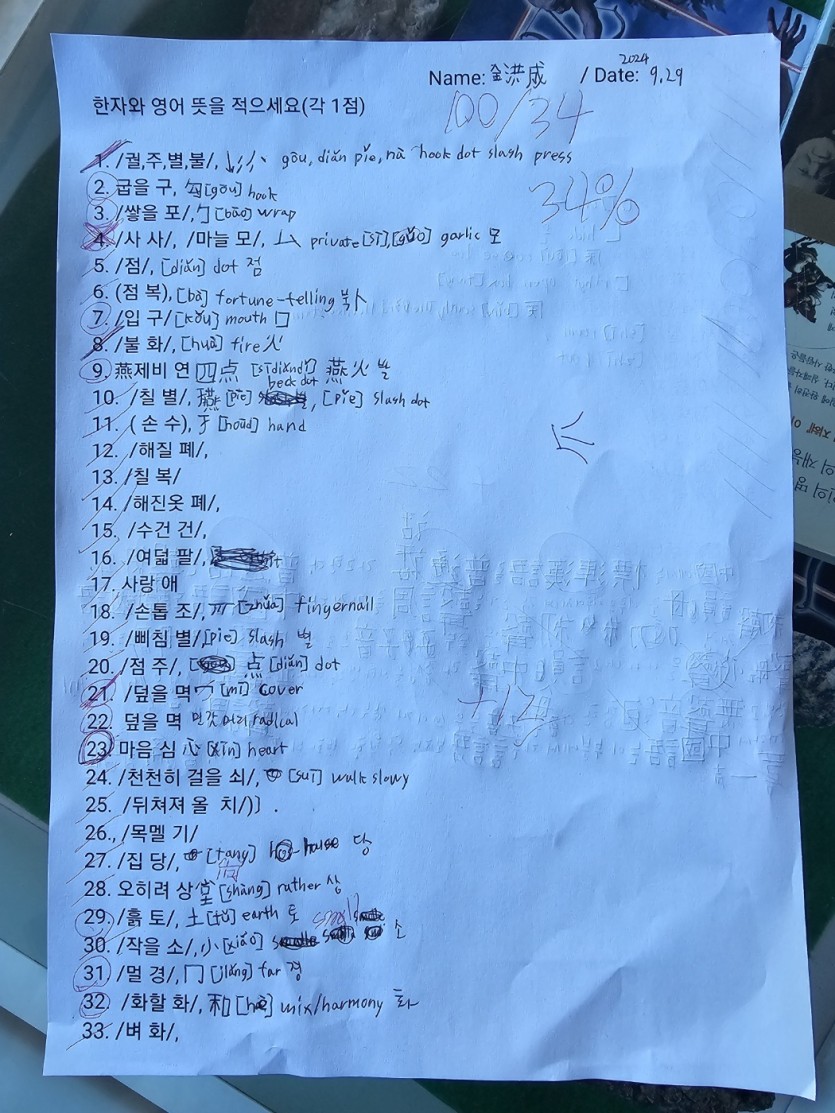 Name: 金洪成 / Date: 2024 9.29
한자와 영어 뜻을 적으세요(각 1점)
100/34
34%
1. /궐,주,별,불/, gōu, diǎn piě, nà hook dot slash press
2. 굽을 구, 勾[gōu] hook
3. /쌓을 포/, 勹[bāo] wrap
4. /사 사/, /마늘 모/, 厶 private [sī], garlic 모
5. /점/, [diǎn] dot 점
6. (점 복), [bǔ] fortune-telling 복卜
7. /입 구/ [kǒu] mouth 口
8. /불 화/, [huǒ] fire 火
9. 燕제비 연 四点 燕火 발
10. /칠 별/, 燕 [piě], [piě] slash dot
11. ( 손 수), hand
12. /해질 폐/,
13. /칠 복/
14. /해진옷 폐/,
15. /수건 건/,
16. /여덟 팔/,
17. 사랑 애
18. /손톱 조/, 爫 [zhuǎ] fingernail
19. /삐침 별/, [piě] slash 별
20. /점 주/, 点 [diǎn] dot
21. /덮을 멱 冖 [mì] cover
22. 덮을 멱 민갓머리 radical
+12
23. 마음 심 心 [xīn] heart
24. /천천히 걸을 쇠/, [suī] walk slowy
25. /뒤쳐져 올 치/)] .
26., /목멜 기/
27. /집 당/, [tang] house 당
28. 오히려 상 堂 [shàng] rather 상
29. /흙 토/, 土 [tǔ] earth 토
small
30. /작을 소/, 小 [xiǎo] 소
31. /멀 경/, 冂 [jiǒng] far 경
32. /화할 화/, 和 [hé] mix/harmony 화
33. /벼 화/,